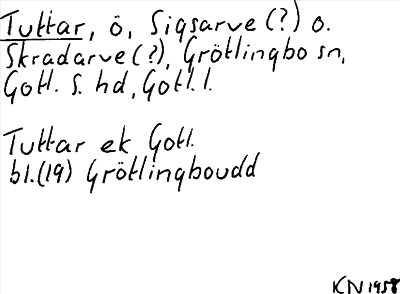 Tuttar, ö, Sigsarve (?) o.
Skradarve (?), Grötlingbo sn,
Gotl. S. hd, Gotl. l.
Tuttar ek Gotl.
bl. (19) Grötlingboudd
KN 1958